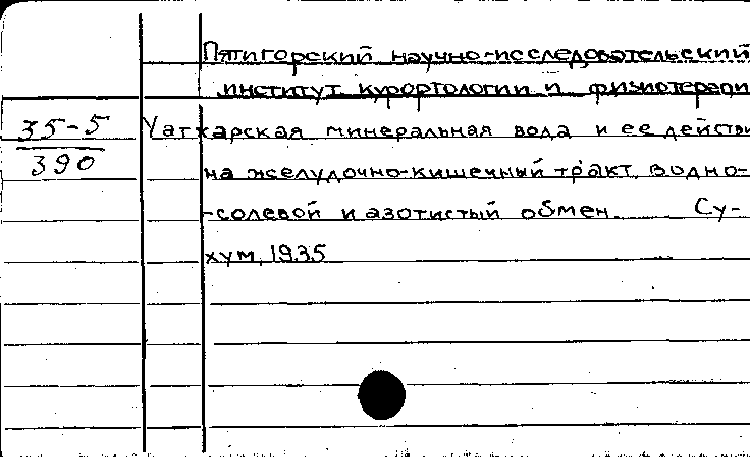 Пятигорский научно-исследовательский
институт курортологии и физиотерапи
35-5
390
Уатхарская минеральная вода и ее действи
на желудочно-кишечный тракт, водно-
-солевой и азотистый обмен. Су-
хум, 1935